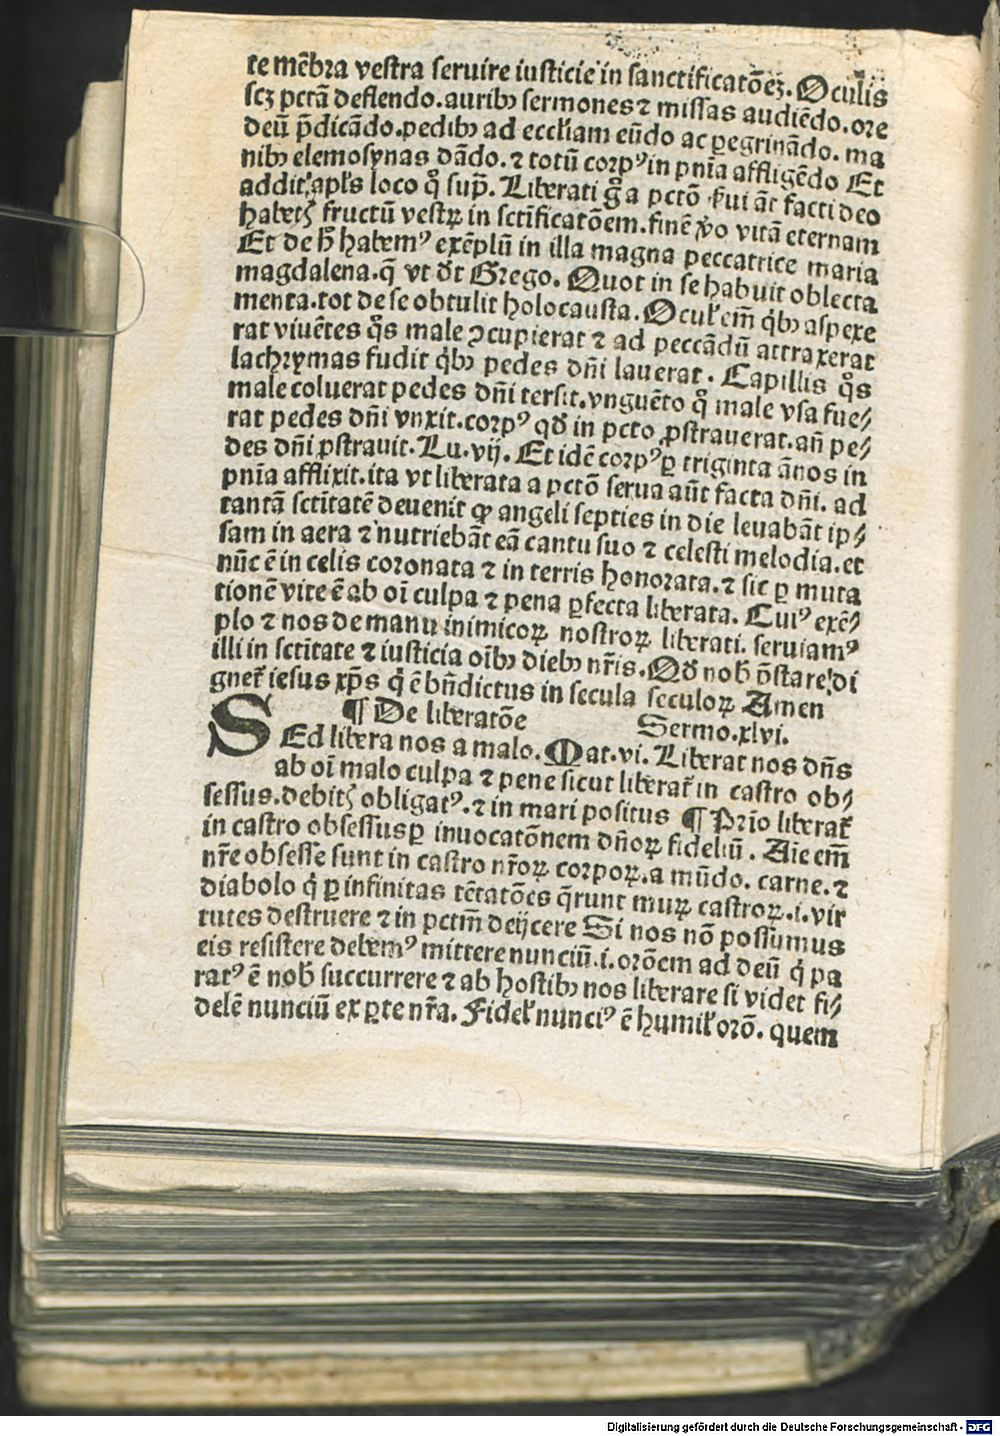 te mẽbꝛa veſtra ſeruire iuſticie in ſanctificatõeꝫ. Oculis
ſcꝫ pctã deflendo. auribꝰ ſermones ⁊ miſſas audiẽdo. oꝛe
deũ p̃dicãdo. pedibꝰ ad eccłiam eũdo ac ꝑegrinãdo. ma
nibꝰ elemoſynas dãdo. ⁊ totũ coꝛpꝰ in pnĩa affligẽdo Et
addit apl̃s loco qͦ ſup̃. Liberati g̃ a pctõ ẜui aũt facti deo
habetꝭ fructũ veſtꝝ in ſctificatõem. finẽ ꝟo vitã eternam
Et de h̃ habemꝰ exẽplũ in illa magna peccatrice maria
magdalena. q̃ vt dt̃ Grego. Quot in ſe habuit oblecta
menta. tot de ſe obtulit holocauſta. Ocuł em̃ qͥbꝰ aſpexe
rat viuẽtes qͦs male ꝯcupierat ⁊ ad peccãdũ attraxerat
lachꝛymas fudit qͥbꝰ pedes dñi lauerat. Capillis qͦs
male coluerat pedes dñi terſit. vnguẽto qͦ male vſa fue⸗
rat pedes dñi vnxit. coꝛpꝰ qd̃ in pcto ꝓſtrauerat. añ pe⸗
des dñi ꝓſtrauit. Lu. vij. Et idẽ coꝛpꝰ ꝑ triginta ãnos in
pnĩa afflixit. ita vt liberata a pctõ ſerua aũt facta dñi. ad
tantã ſctĩtatẽ deuenit ꝙ angeli ſepties in die leuabãt ip⸗
ſam in aera ⁊ nutriebãt eã cantu ſuo ⁊ celeſti melodia. et
nũc ẽ in celis coꝛonata ⁊ in terris honoꝛata. ⁊ ſic ꝑ muta
tionẽ vite ẽ ab oĩ culpa ⁊ pena ꝑfecta liberata. Cuiꝰ exẽ⸗
plo ⁊ nos de manu inimicoꝝ noſtroꝝ liberati. ſeruiamꝰ
illi in ſctĩtate ⁊ iuſticia oĩbꝰ diebꝰ nr̃is. Qd̃ nob̃ p̃ſtare di
gnet᷑ ieſus xp̃s qͥ ẽ bñdictus in ſecula ſeculoꝝ Amen
¶ De liberatõe Sermo. xlvi.
SEd libera nos a malo. Mat. vi. Liberat nos dñs
ab oĩ malo culpa ⁊ pene ſicut liberat᷑ in caſtro ob⸗
ſeſſus. debitꝭ obligatꝰ. ⁊ in mari poſitus ¶ Pꝛĩo liberat᷑
in caſtro obſeſſus ꝑ inuocatõnem dñoꝝ fideliũ. Aĩe em̃
nr̃e obſeſſe ſunt in caſtro nr̃oꝝ coꝛpoꝝ. a mũdo. carne. ⁊
diabolo qͥ ꝑ infinitas tẽtatões q̃runt muꝝ caſtroꝝ. i. vir
tutes deſtruere ⁊ in pctm̃ deijcere Si nos nõ poſſumus
eis reſiſtere debemꝰ mittere nunciũ. i. oꝛõem ad deũ qͥ pa
ratꝰ ẽ nob̃ ſuccurrere ⁊ ab hoſtibꝰ nos liberare ſi videt fi⸗
delẽ nunciũ ex ꝑte nr̃a. Fideł nunciꝰ ẽ humił oꝛõ. quem
Digitalisierung gefördert durch die Deutsche Forschungsgemeinschaft - DFG